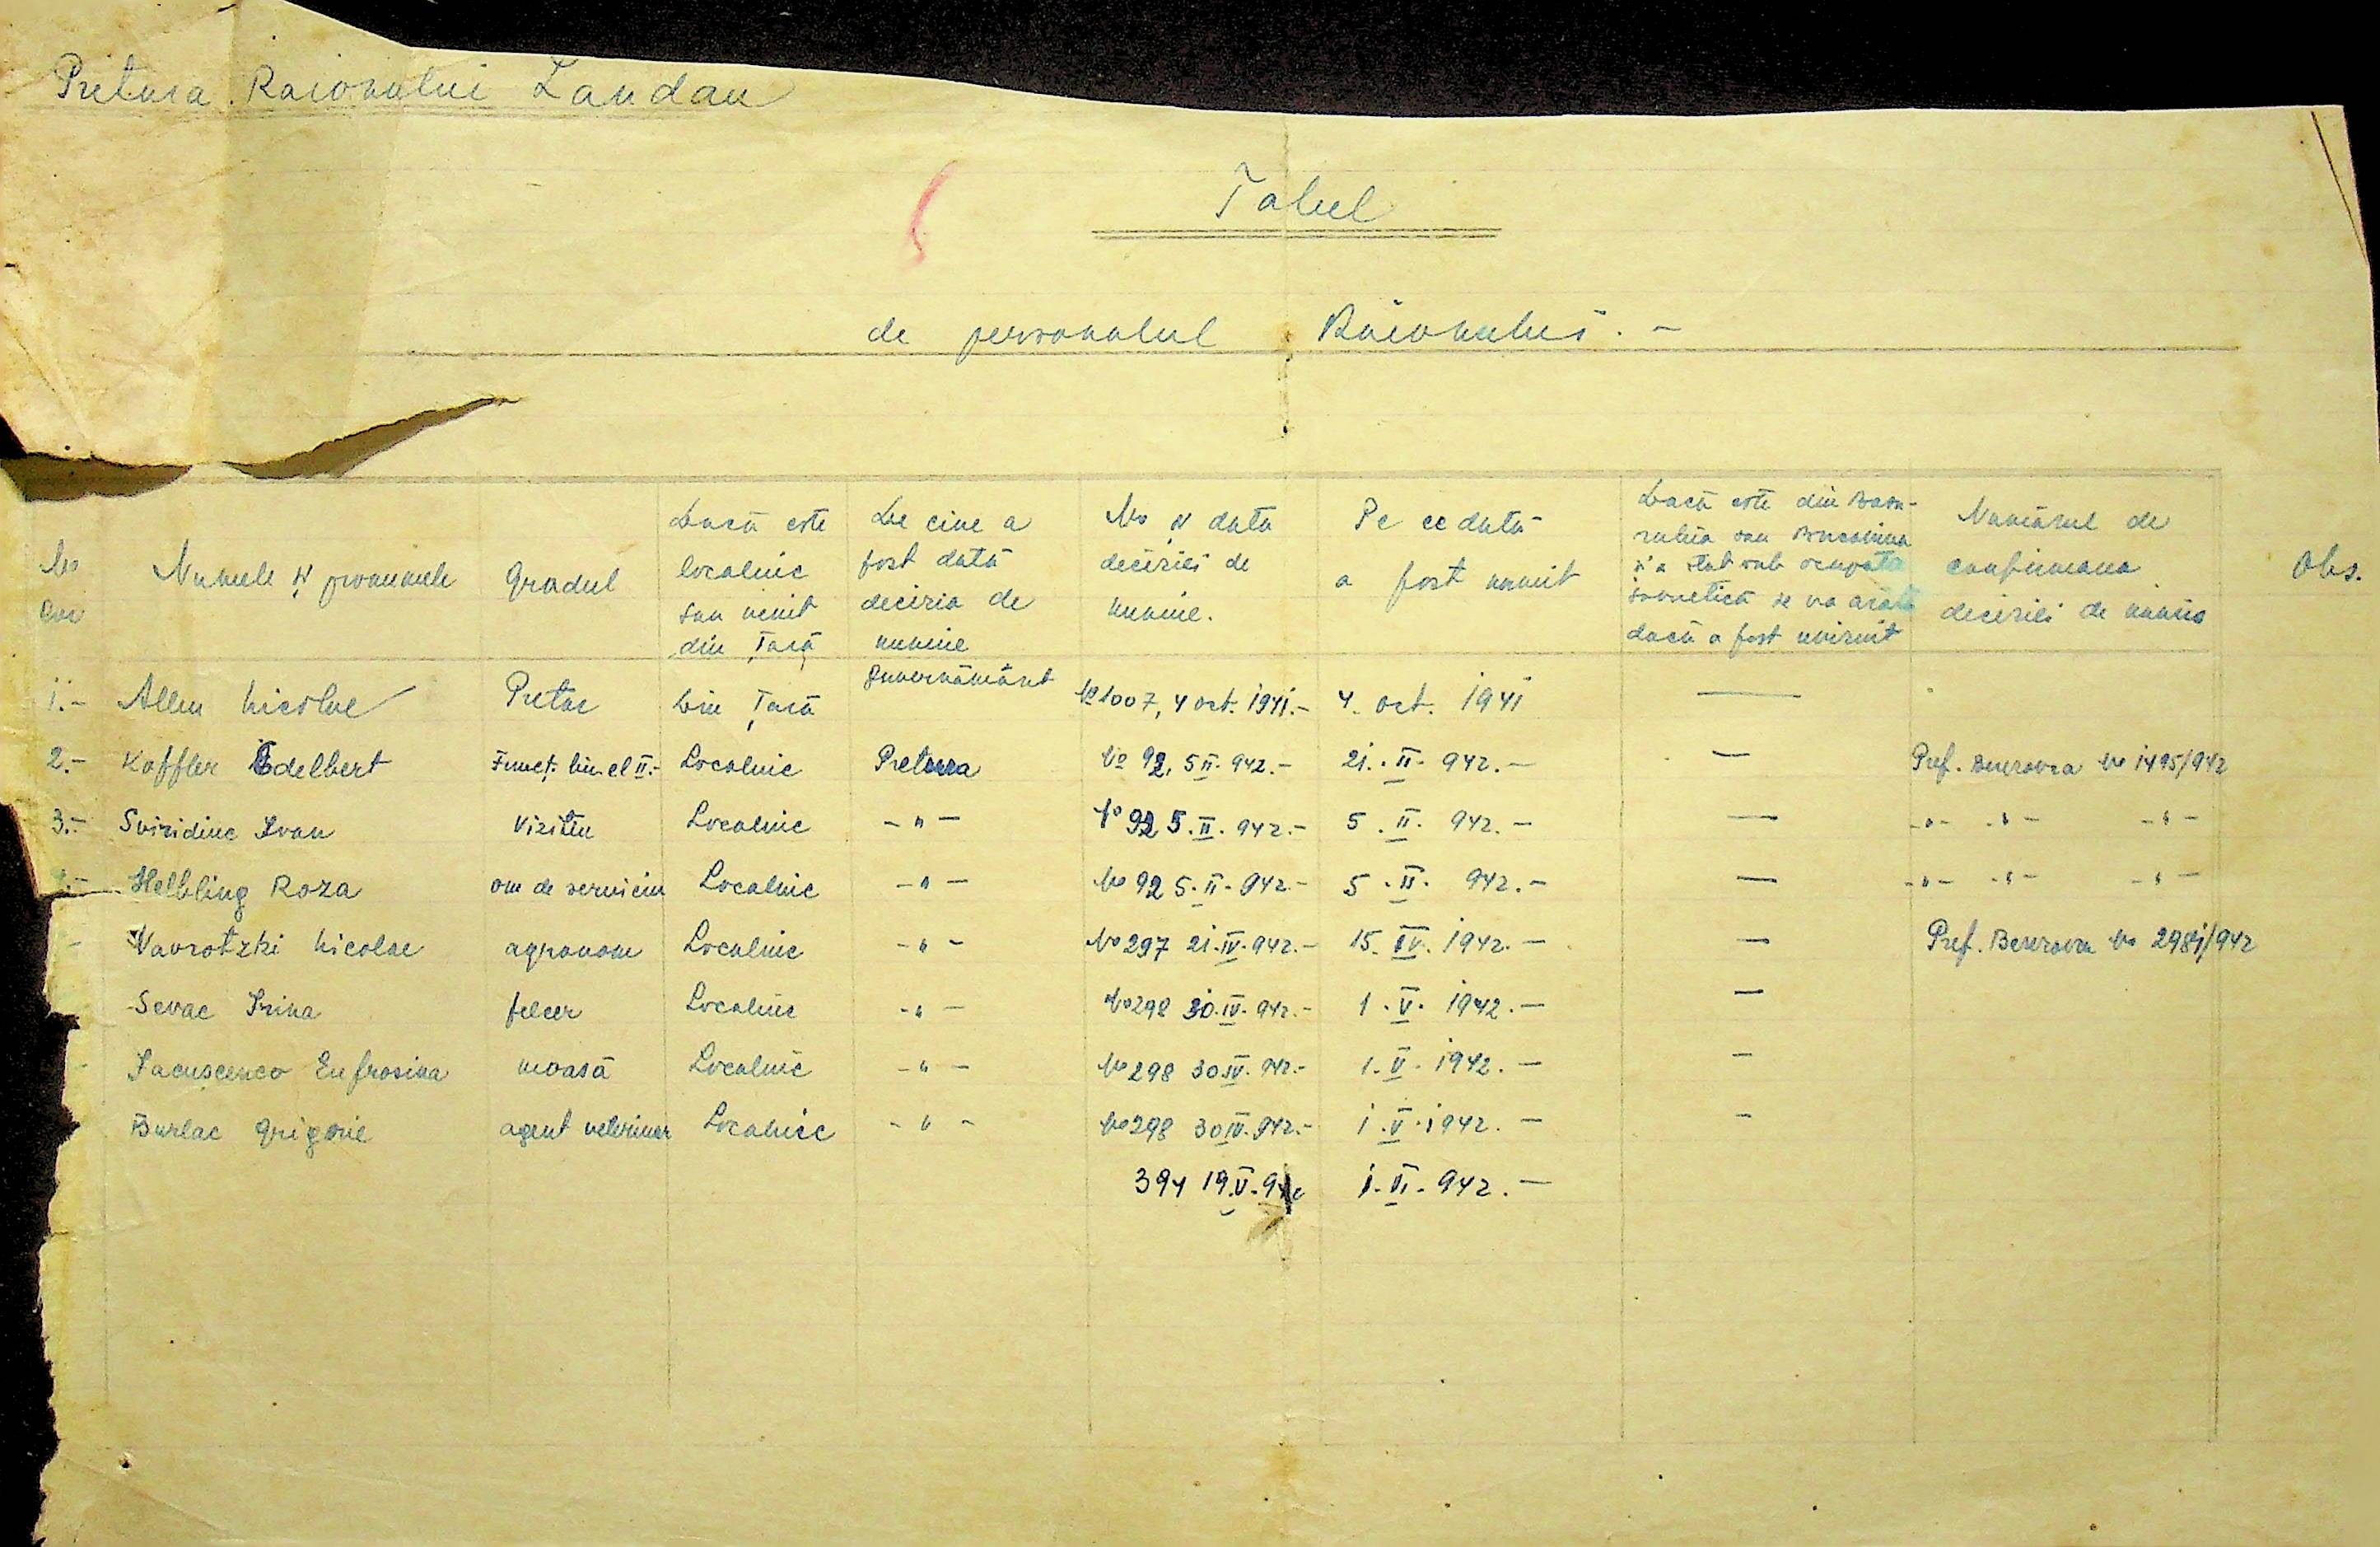 Pretura Raionului Landau
Tabel
de personalul Raionului. –
No
Numele și pronumele
Gradul
Dacă este
localnic
sau venit
din Țară
De cine a
fost dată
decizia de
numire
No și data
deciziei de
numire.
Pe ce dată
a fost numit
Dacă este din Basa-
rabia sau Bucovina
și a stat sub ocupația
sovietică se va arăta
dacă a fost
Numărul de
confirmarea
deciziei de numire
Obs.
1.– Alleu Nicolae Pretor Din Țară Guvernământ No 1007, 4 oct. 1941.– 4. oct. 1941 —
2.– Koffler Edelbert Funcț. cl II.– Localnic Pretura No 92, 5 II. 942.– 21. II. 942.– — Pref. Berezovca No 1495/942
3.– Sviridiuc Ivan Vizitiu Localnic –"– No 92 5. II. 942.– 5. II. 942.– — –"– –"– –"–
4.– Helbling Roza om de serviciu Localnic –"– No 92 5. II. 942– 5. II. 942.– — –"– –"– –"–
– Navrotzki Nicolae agronom Localnic –"– No 297 21. IV. 942.– 15. IV. 1942.– — Pref. Berezovca No 2981/942
Sevac Irina felcer Localnic –"– No 298 30. IV. 942.– 1. V. 1942.– —
Iacuscenco Eufrosina moașă Localnic –"– No 298 30 IV. 942.– 1. V. 1942.– –
Burlac Grigorie agent veterinar Localnic –"– No 298 30 IV. 942.– 1. V. 1942.– –
394 19. V. 942 1. VI. 942.–